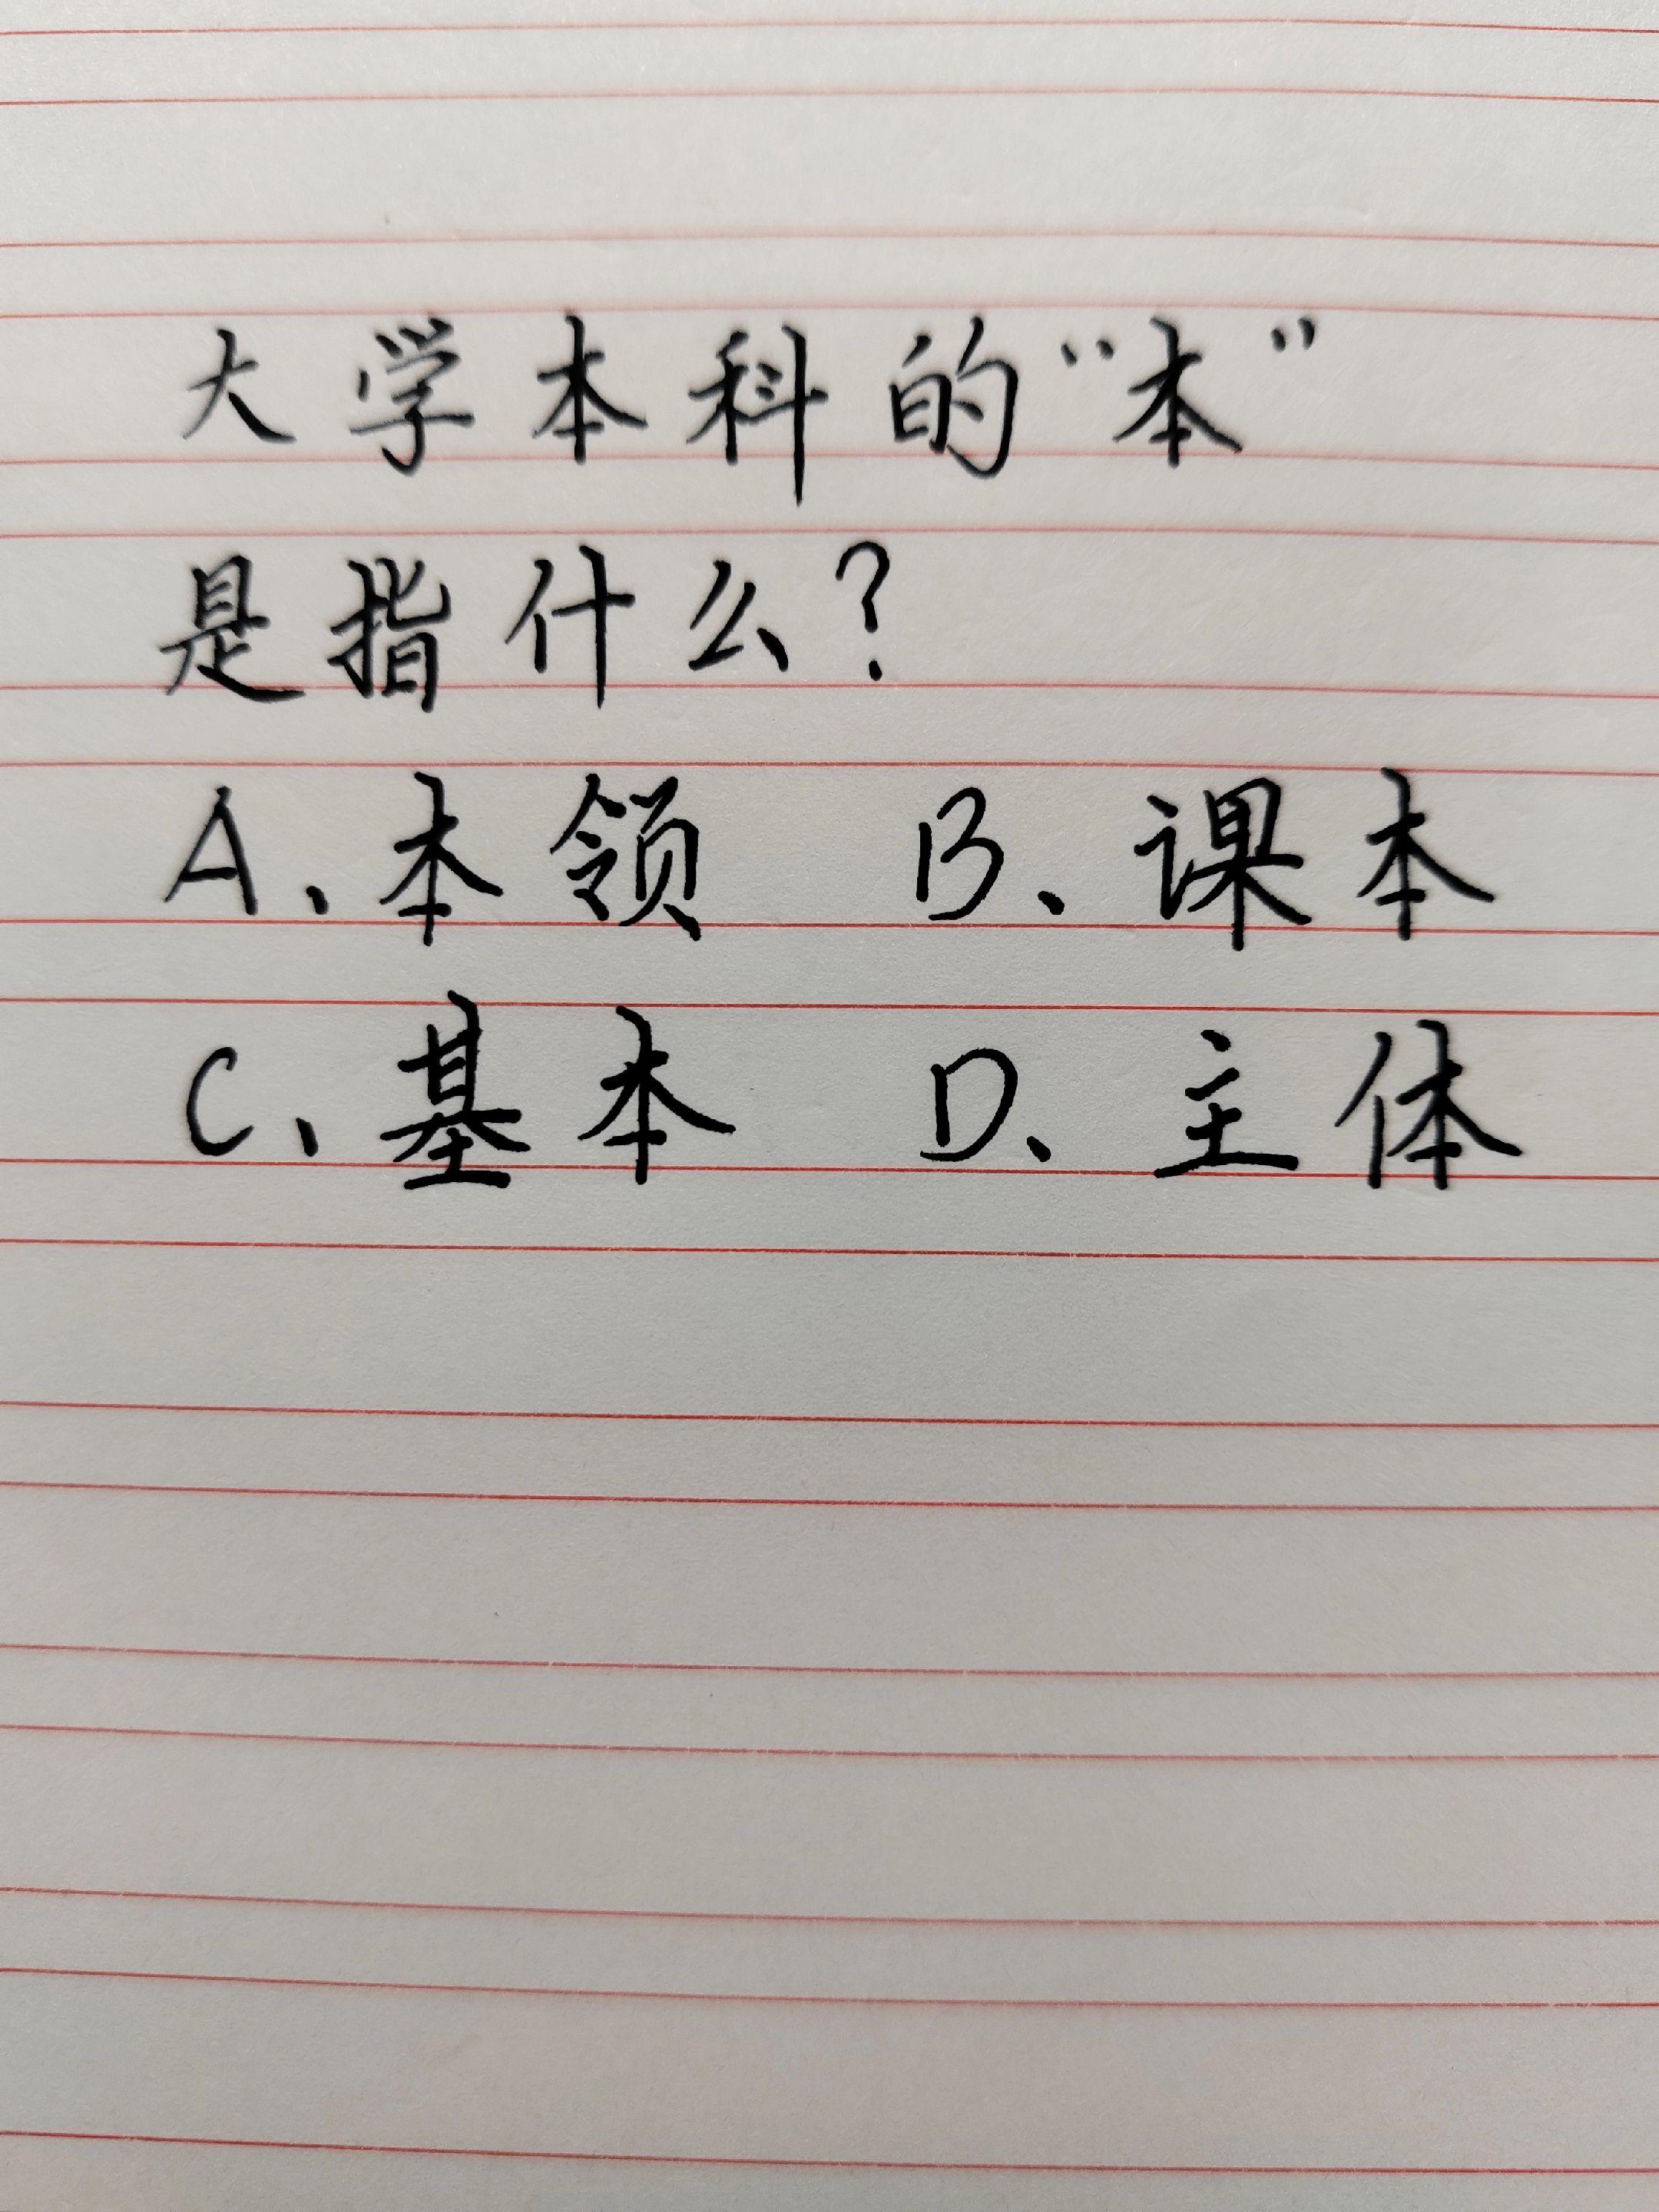 大学本科的“本”
是指什么？
A、本领 B、课本
C、基本 D、主体